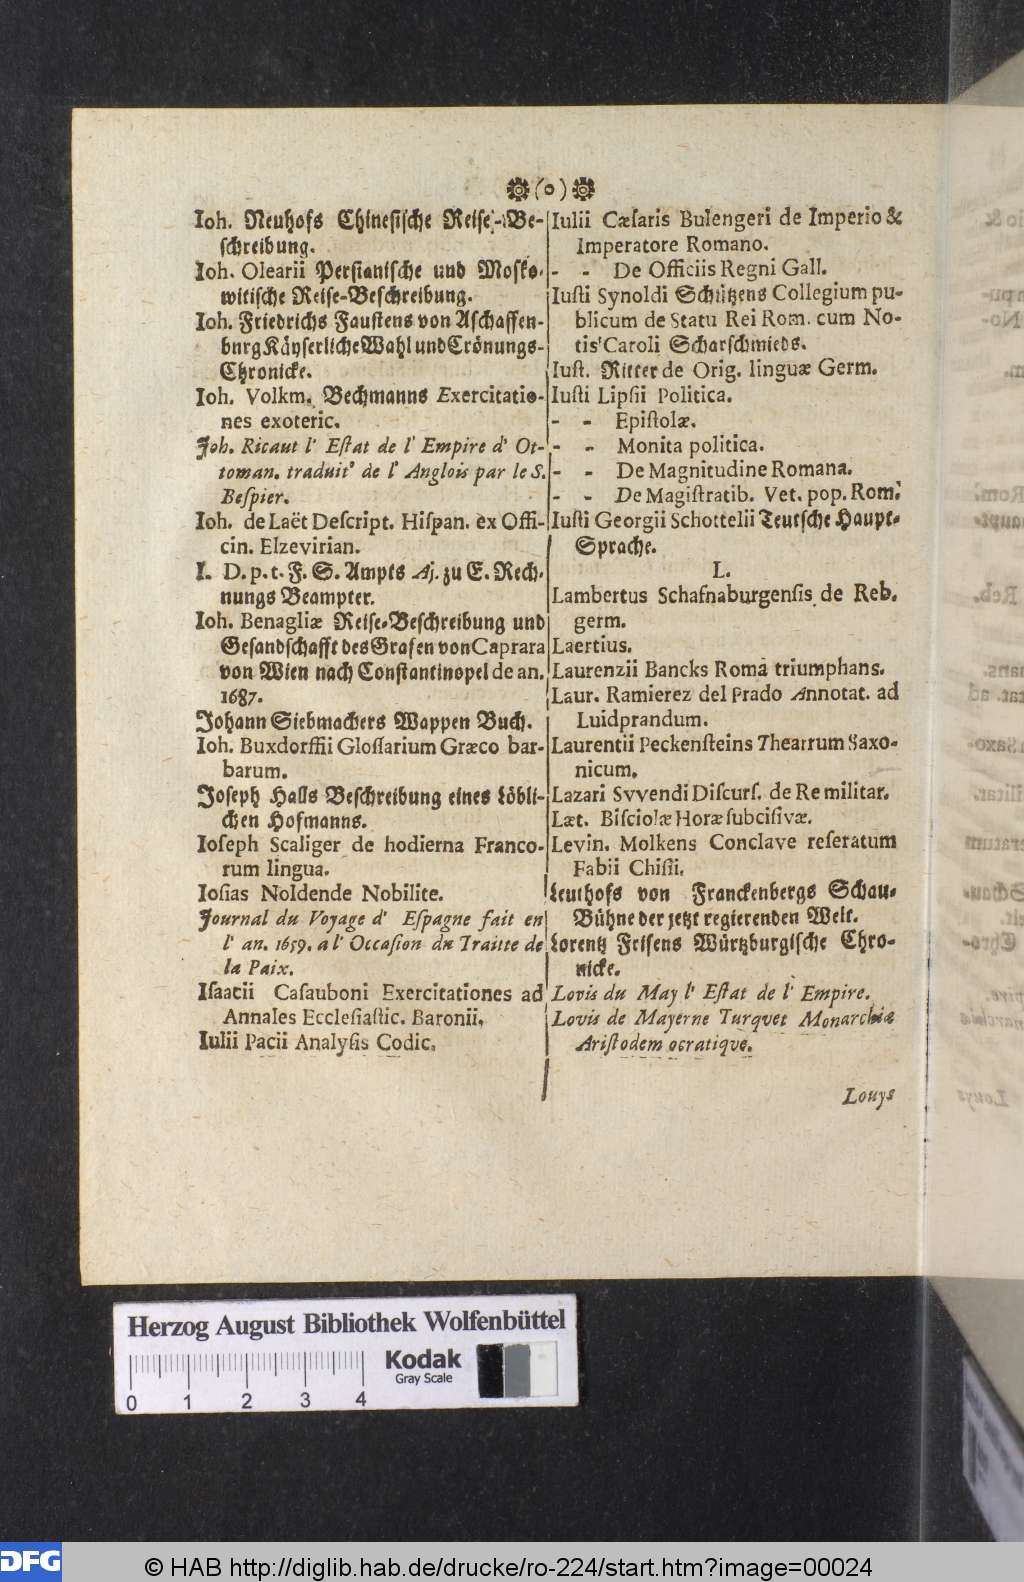 (o)
Ioh. Neuhofs Chinesische Reise-Be-
schreibung.
Ioh. Olearii Persianische und Mosko-
witische Reise-Beschreibung.
Ioh. Friedrichs Faustens von Aschaffen-
bnrg Käyserliche Wahl und Crönungs-
Chronicke.
Ioh. Volkm. Bechmanns Exercitatio-
nes exoteric.
Joh. Ricaut l' Eſtat de l' Empire d' Ot-
toman. traduit' de l' Anglois par le S.
Beſpier.
Ioh. de Laët Deſcript. Hiſpan. ex Offi-
cin. Elzevirian.
I. D. p. t. F. S. Ampts Aj. zu E. Rech-
nungs Beampter.
Ioh. Benagliæ Reise-Beschreibung und
Gesandschafft des Grafen von Caprara
von Wien nach Constantinopel de an.
1687.
Johann Siebmachers Wappen Buch.
Ioh. Buxdorffii Gloſſarium Græco bar-
barum.
Joseph Halls Beschreibung eines löbli-
chen Hofmanns.
Ioſeph Scaliger de hodierna Franco-
rum lingua.
Ioſias Noldende Nobilite.
Journal du Voyage d' Eſpagne fait en
l' an. 1659. a l' Occaſion du Traitte de
la Paix.
Iſaacii Caſauboni Exercitationes ad
Annales Eccleſiaſtic. Baronii,
Iulii Pacii Analyſis Codic.
Iulii Cæſaris Bulengeri de Imperio &
Imperatore Romano.
- - De Officiis Regni Gall.
Iuſti Synoldi Schützens Collegium pu-
blicum de Statu Rei Rom. cum No-
tis Caroli Scharschmieds.
Iuſt. Ritter de Orig. linguæ Germ.
Iuſti Lipſii Politica.
- - Epiſtolæ.
- - Monita politica.
- - De Magnitudine Romana.
- - De Magiſtratib. Vet. pop. Rom.
Iuſti Georgii Schottelii Teutsche Haupt-
Sprache.
L.
Lambertus Schafnaburgenſis de Reb.
germ.
Laertius.
Laurenzii Bancks Roma triumphans.
Laur. Ramierez del Prado Annotat. ad
Luidprandum.
Laurentii Peckenſteins Thearrum Saxo-
nicum.
Lazari Svvendi Diſcurſ. de Re militar.
Læt. Biſciolæ Horæ ſubciſivæ.
Levin. Molkens Conclave reſeratum
Fabii Chiſii.
Leuthofs von Franckenbergs Schau-
Bühne der jetzt regierenden Welt.
Lorentz Frisens Würtzburgische Chro-
nicke.
Lovis du May l' Eſtat de l' Empire.
Lovis de Mayerne Turquet Monarchiæ
Ariſtodem ocratique.
Louys
Herzog August Bibliothek Wolfenbüttel
Kodak
Gray Scale
0 1 2 3 4
DFG
© HAB http://diglib.hab.de/drucke/ro-224/start.htm?image=00024